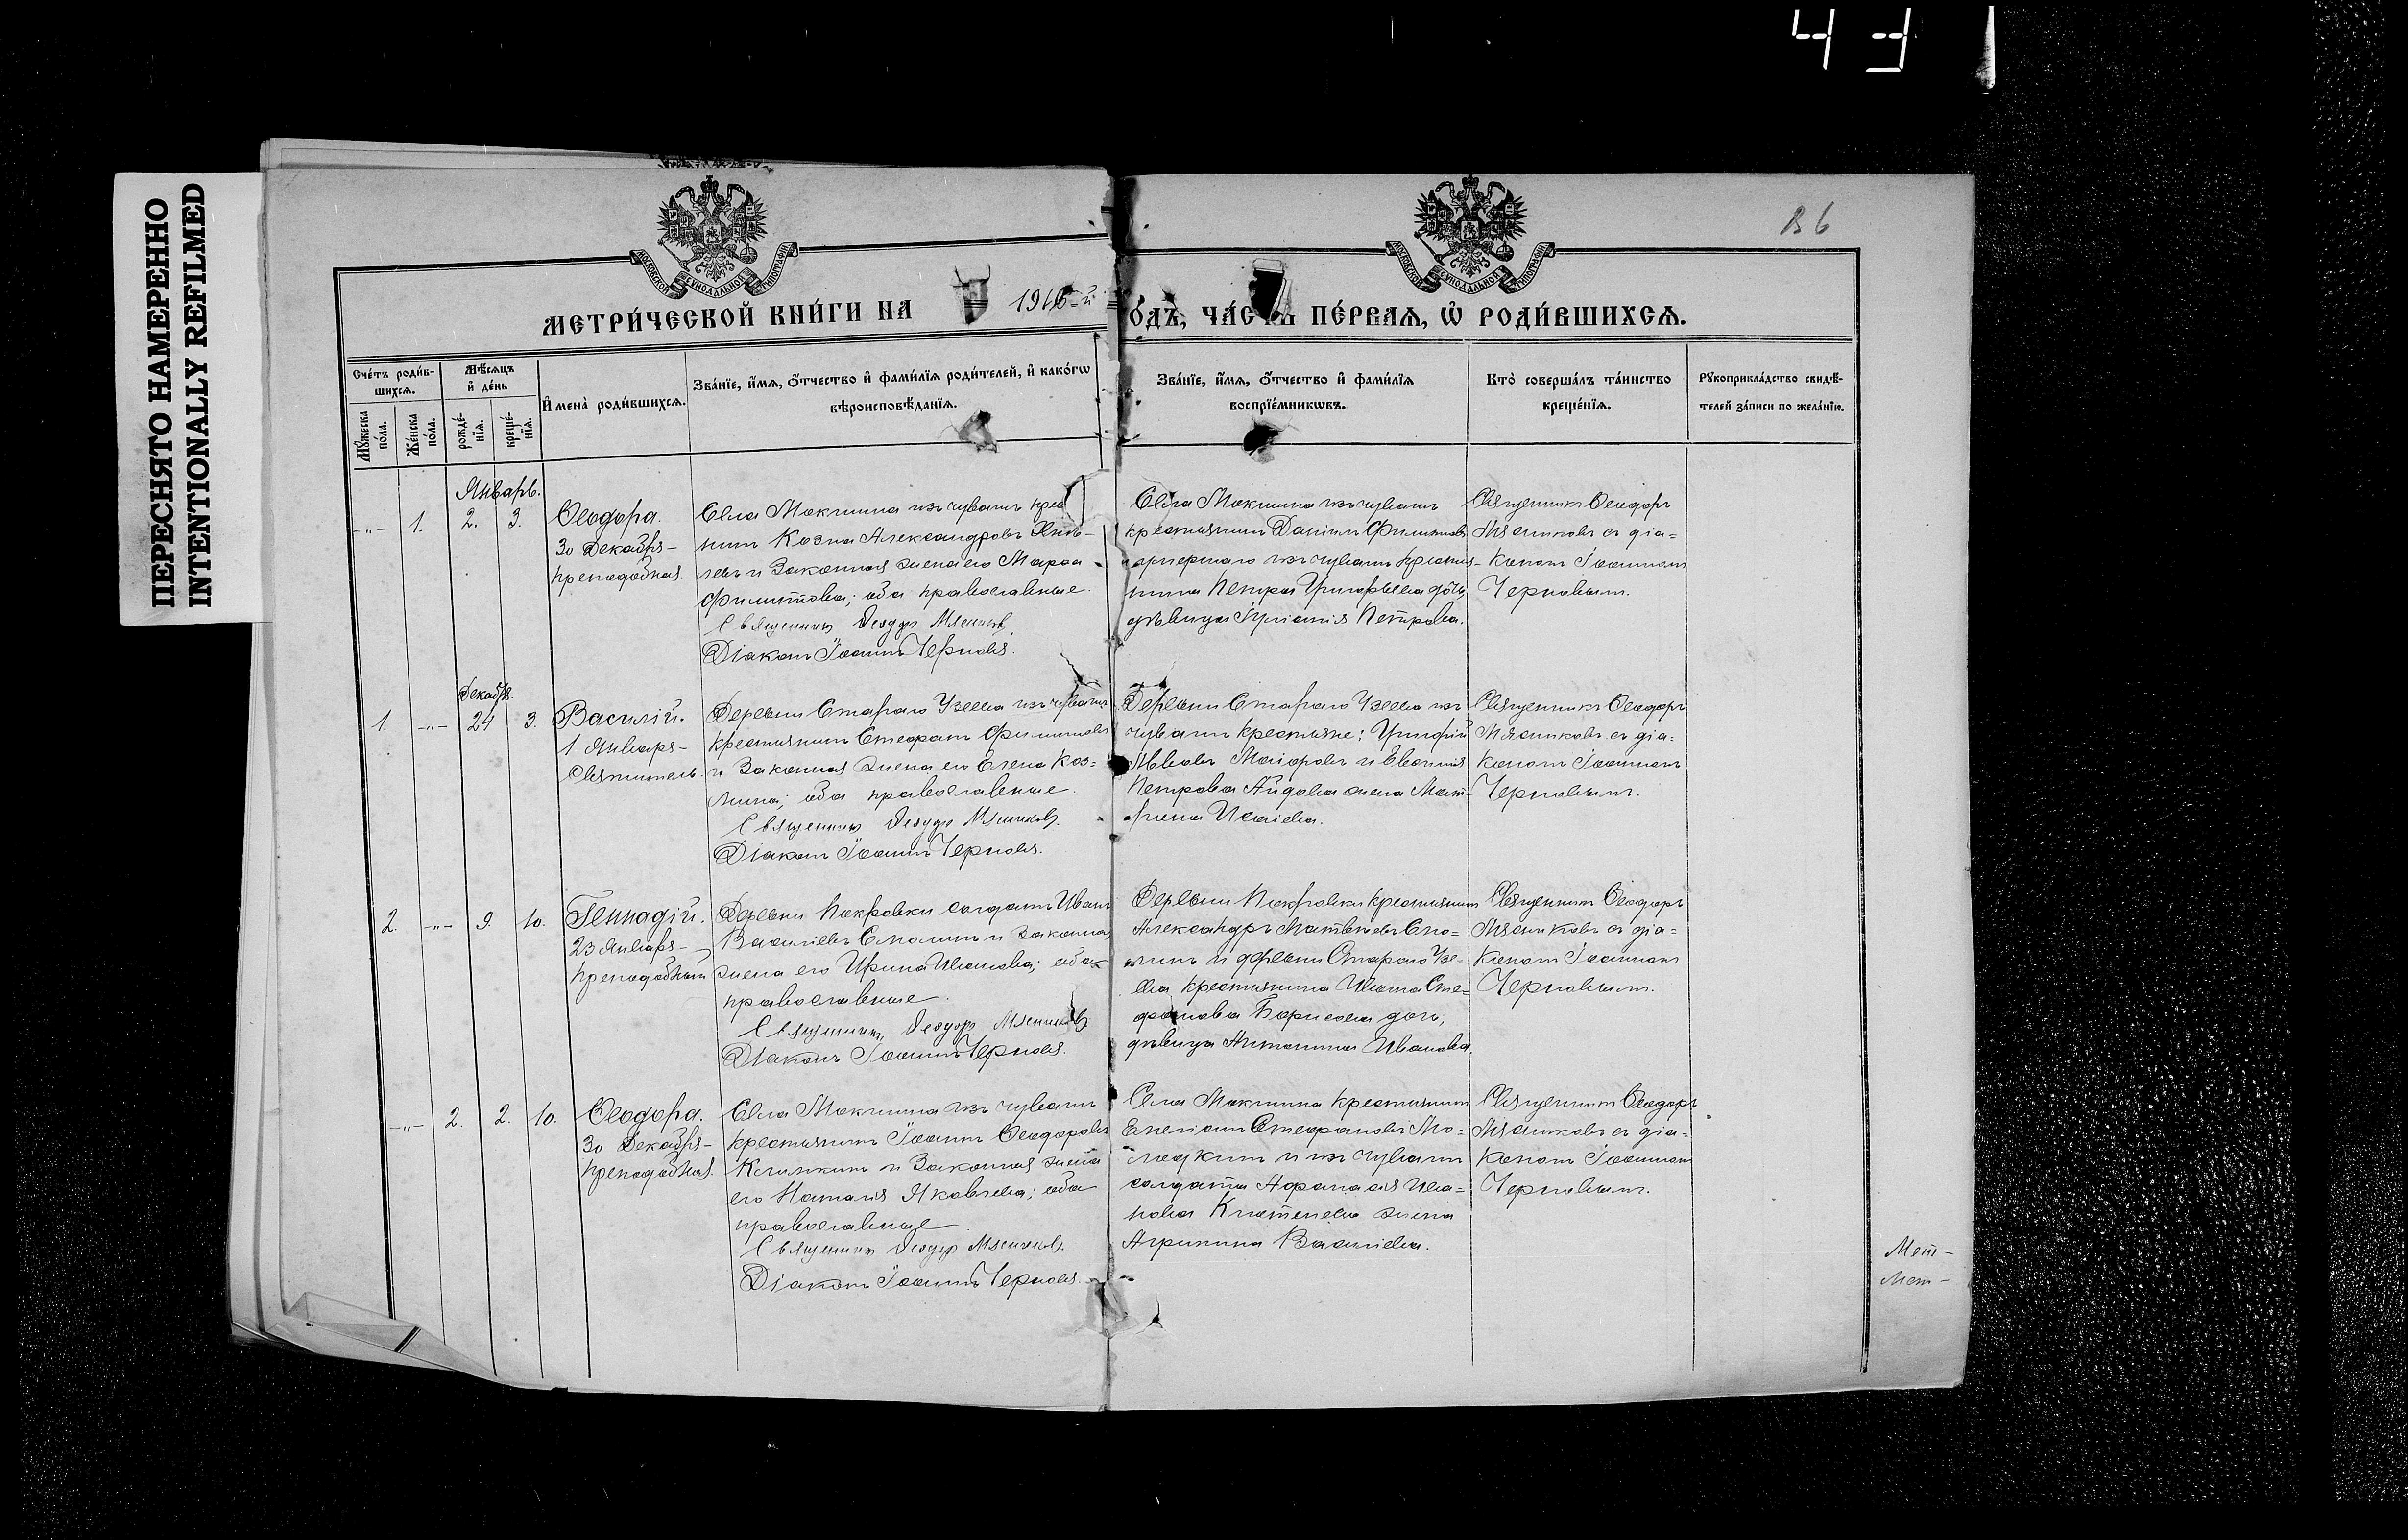 43
ПЕРЕСНЯТО НАМЕРЕННО
INTENTIONALLY REFILMED
МОСКОВСКОЙ СУНОДАЛЬНОЙ ТИПОГРАФІИ
МОСКОВСКОЙ СУНОДАЛЬНОЙ ТИПОГРАФІИ
МЕТРИ́ЧЕСКОЙ КНИ́ГИ НА 1916-й
О́ДЪ, ЧА́СТЬ ПЕ́РВАЯ, Ѡ҆ РОДИ́ВШИХСЯ.
Сче́тъ роди́в-
шихся.
Мꙋ́жеска по́ла.
Же́нска по́ла.
Мѣ́сяцъ
и҆ де́нь
рожде́-
нїя.
креще́-
нїя.
И҆мена̀ роди́вшихся.
Зва́нїе, и҆́мя, ѻ҆́тчество и҆ фами́лїя роди́телей, и҆ како́гѡ
вѣроисповѣ́данїя.
Зва́нїе, и҆́мя, ѻ҆́тчество и҆ фами́лїя
воспрїе́мникѡвъ.
Кто̀ соверша́лъ та́инство
креще́нїя.
Рꙋкоприкла́дство свидѣ́-
телей за́писи по жела́нїю.
Январь.
-„- 1. 2. 3.
Ѳеодора.
30 Декабря-
преподобная.
Села Мокшина изъ чувашъ кре
нинъ Козма Александровъ Яков-
левъ и законная жена его Марѳа
Филиппова; оба православные.
Священникъ Ѳеодоръ Мясников
Діаконъ Іоаннъ Черновъ.
Села Мокшина изъ чувашъ
крестьянинъ Даніилъ Филипповъ
изъ чувашъ крестья-
нина Петра Григорьева дочь,
дѣвица Іуліанія Петрова.
Священникъ Ѳеодоръ
Мясниковъ съ діа=
кономъ Іоанномъ
Черновымъ.
Декабрь.
1. -„- 24 3.
Василій.
1 Января-
Святитель.
Деревни Стараго Узеева изъ чувашъ
крестьянинъ Стефанъ Филипповъ
и законная жена его Елена Коз=
мина; оба православные.
Священникъ Ѳеодоръ Мясников.
Діаконъ Іоаннъ Черновъ.
Деревни Стараго Узеева изъ
чувашъ крестьяне: Григорій
Львовъ Маіоровъ и Евѳимія
Петрова Айдова жена Мат-
рона Исаіева.
Священникъ Ѳеодоръ
Мясниковъ съ діа=
кономъ Іоанномъ
Черновымъ.
2. -„- 9. 10.
Геннадій.
23 Января-
преподобный
Деревни Покровки солдатъ Иванъ
Василіевъ Смолинъ и законная
жена его Ирина Иванова; оба
православные.
Священникъ Ѳеодоръ Мясников
Діаконъ Іоаннъ Черновъ.
Деревни Покровки крестьянинъ
Александръ Матвѣевъ Смо=
линъ и деревни Стараго Узе=
ева крестьянина Ивана Сте=
фанова Борисова дочь,
дѣвица Антонина Иванова.
Священникъ Ѳеодоръ
Мясниковъ съ діа=
кономъ Іоанномъ
Черновымъ.
-„- 2. 2. 10.
Ѳеодора.
30 Декабря-
преподобная.
Села Мокшина изъ чувашъ
крестьянинъ Іоаннъ Ѳеодоровъ
Клинкинъ и законная жена
его Наталія Яковлева; оба
православные.
Священникъ Ѳеодоръ Мясников.
Діаконъ Іоаннъ Черновъ.
Села Мокшина крестьянинъ
Емеліанъ Стефановъ Мо=
лодкинъ и изъ чувашъ
солдата Аѳанасія Ива=
нова жена
Агрипина Василіева.
Священникъ Ѳеодоръ
Мясниковъ съ діа=
кономъ Іоанномъ
Черновымъ.